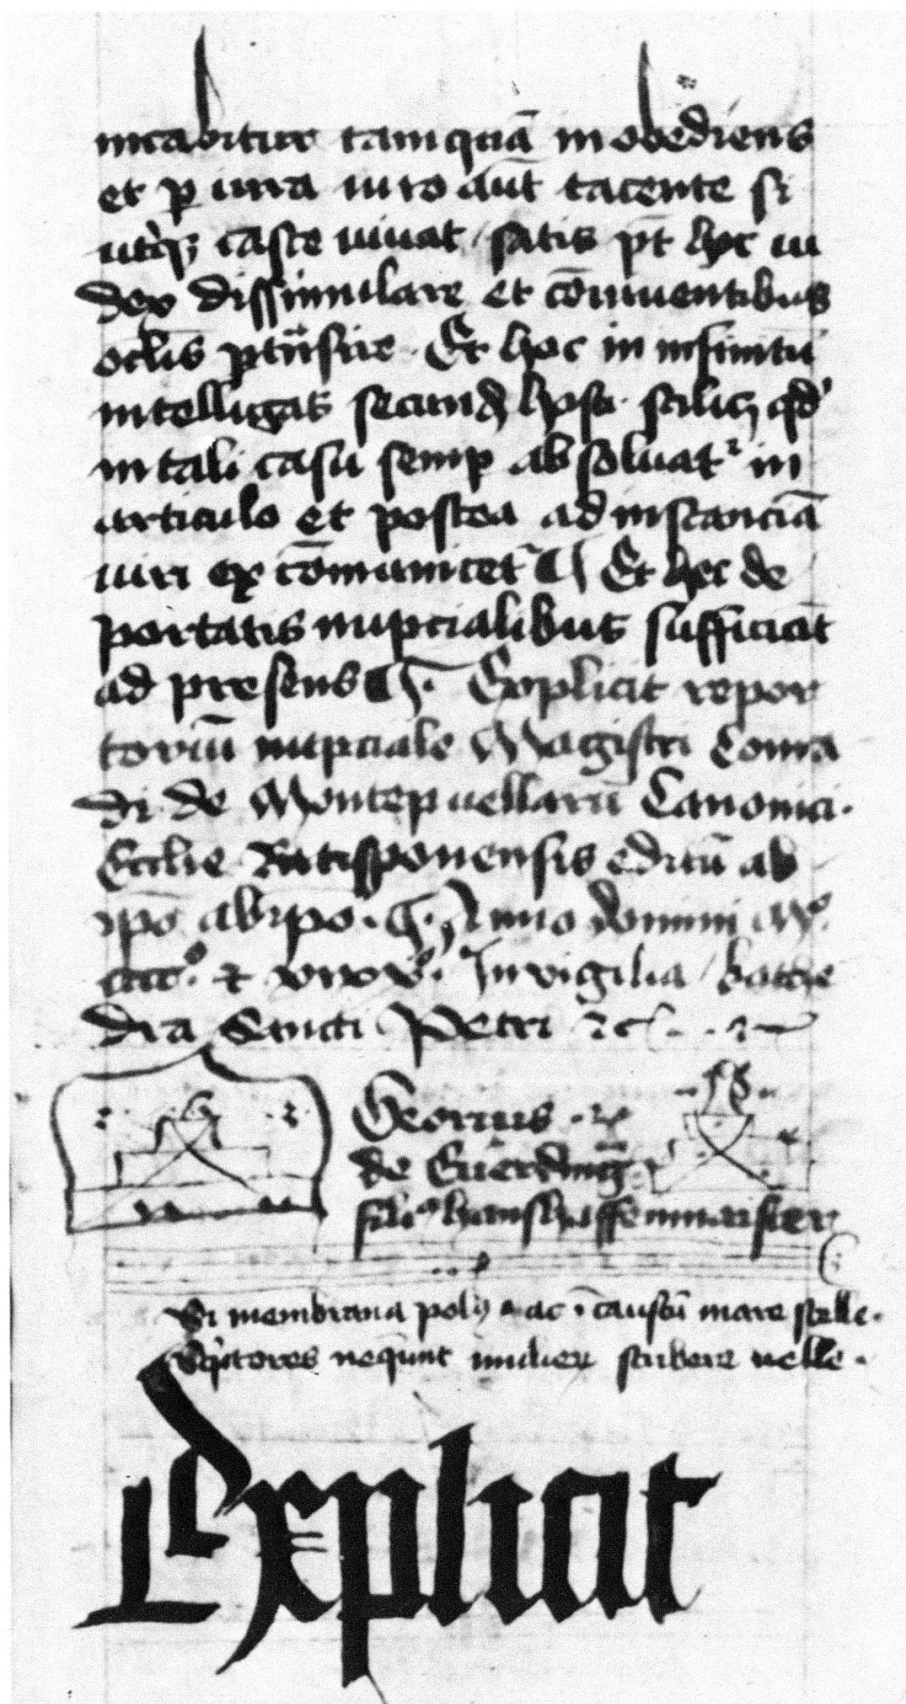 nicabitur tamquā inobediens
et p iura iuro aūt tacente si
utrqꝫ caste uiuat satis pt hec iu
dex dissimulare et cōniuentibus
oclis ptnsire · Et hoc in infinitū
intelligas secundꝫ hosti · scilicꝫ qd
in tali casu semp absoluat in
articulo et postea ad instanciā
uiri excōmunicet ¶ Et hec de
portatis nupcialibus sufficiāt
ad presens ¶ · Explicit reper
toriū nupciale Magistri Conra
di de Montepuellarū Canonici ·
Ecclie Ratisponensis editū ab
ipo ab ipo · ¶ · Anno domini Mo
cccco · et xxxv · In vigilia kathe
dra Sancti Petri
Georius
de Euerding
filiꝰ hans
Si membrana polꝫ ac īcaustū mare stelle ·
Sc̄ptores neq̄unt mulieꝝ scribere uelle ·
Explicit